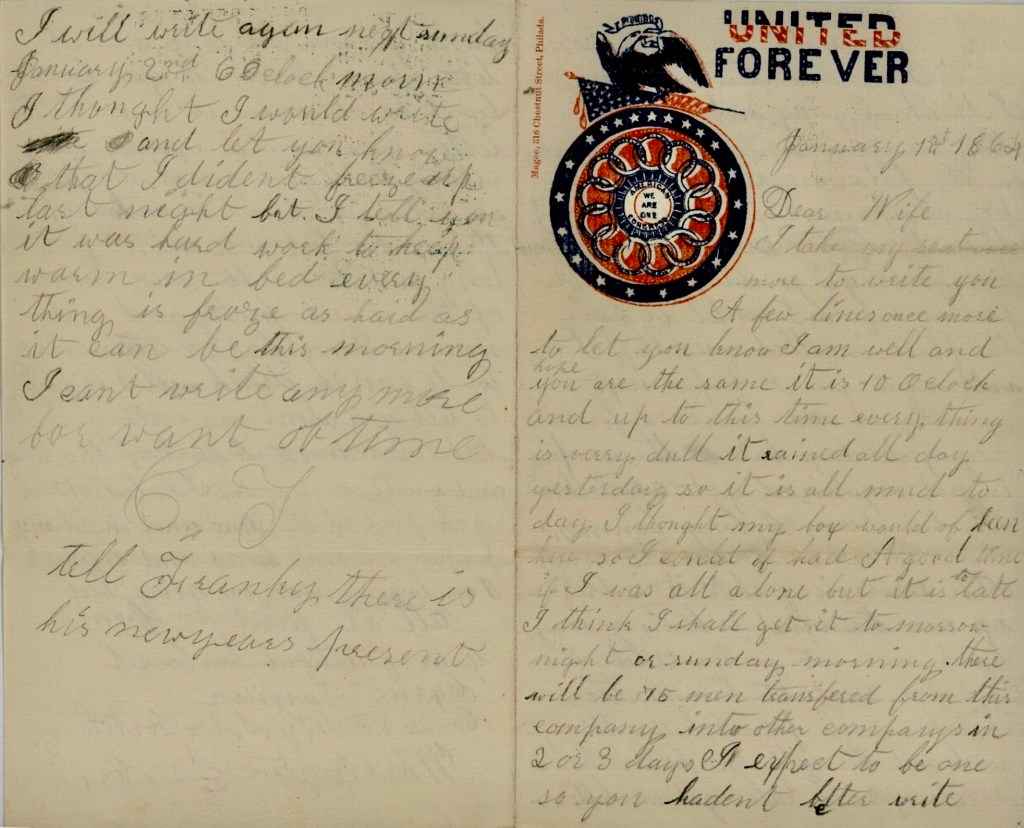 I will write agan next sunday
January 2nd 6 Oclock morn
I thought I would write
and let you know
that I dident freeze up
last night but I tell you
it was hard work to keep
warm in bed every
thing is froze as hard as
it can be this morning
I cant write any more
for want of time
C J
tell Franky there is
his newyears present
Magee, 316 Chestnut Street, Philada.
UNITED
FOREVER
AMERICAN
CONGRESS
WE
ARE
ONE
January 1st 1864
Dear Wife
I take my seat once
more to write you
A few lines once more
to let you know I am well and
hope
you are the same it is 10 Oclock
and up to this time every thing
is verry dull it rained all day
yesterday so it is all mud to
day I thought my box would of been
here so I could of had A good time
if I was all alone but it is to late
I think I shall get it to morrow
night or sunday morning there
will be 15 men transfered from this
company into other companys in
2 or 3 days I expect to be one
so you hadent better write